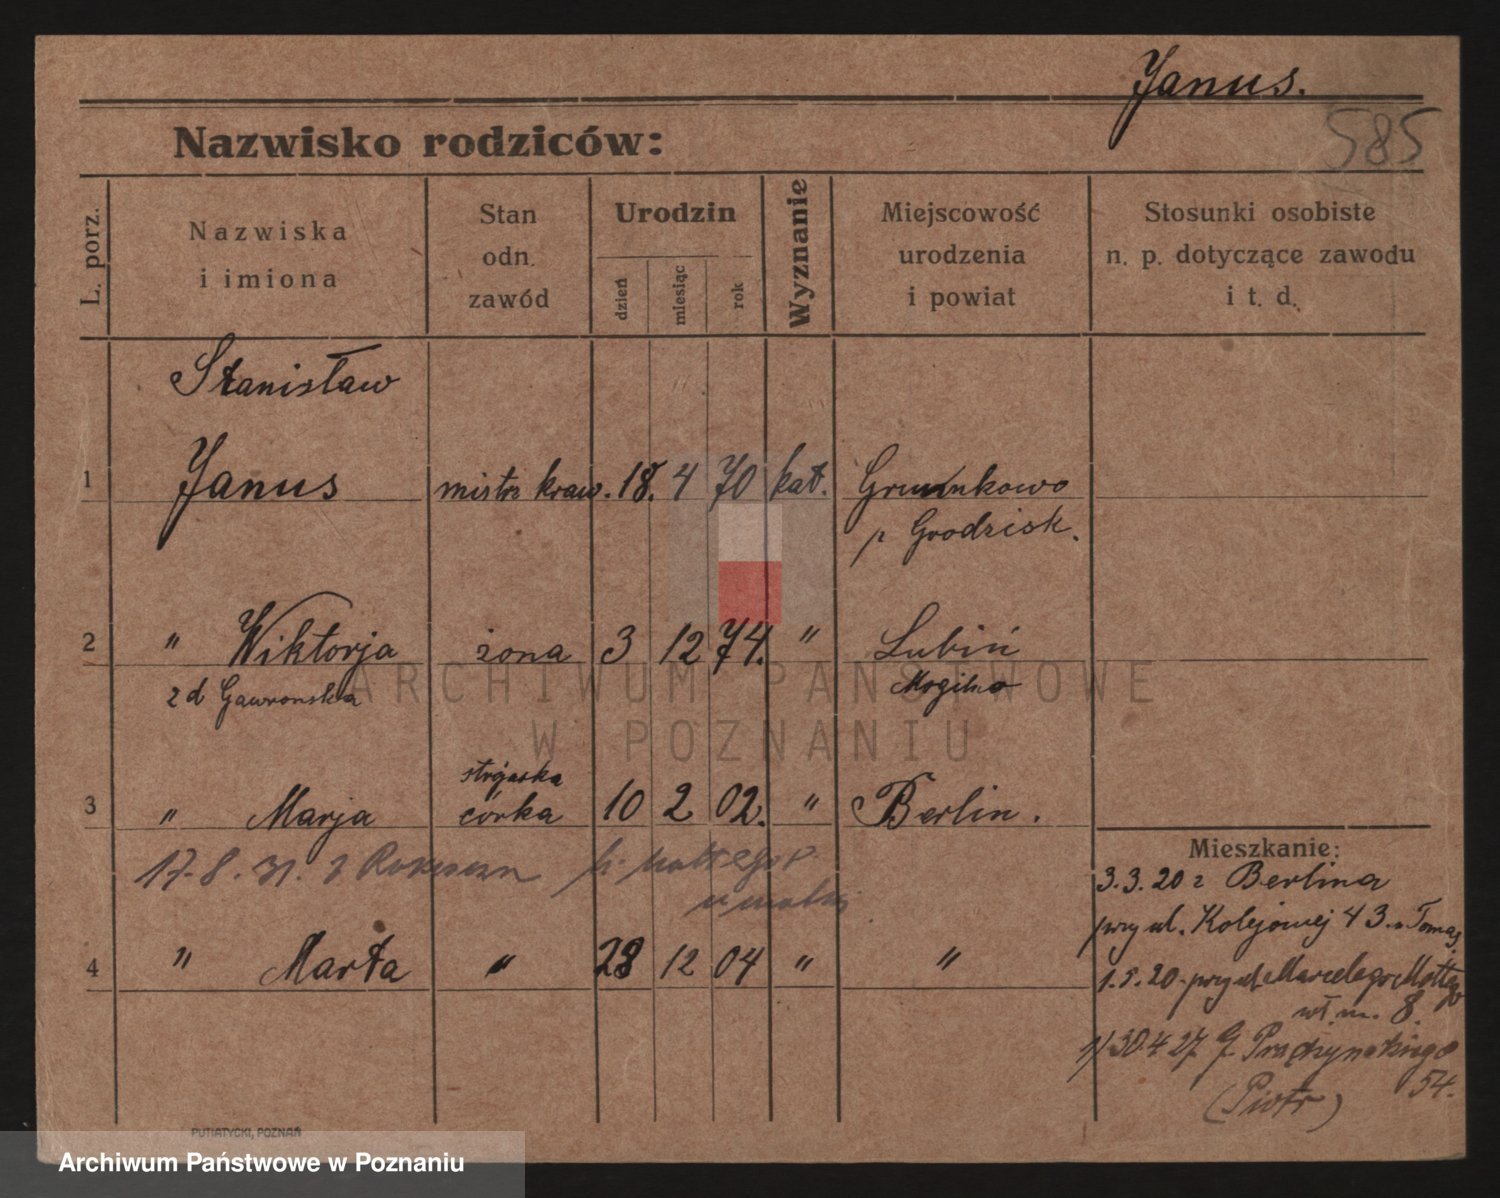 Janus.
585
Nazwisko rodziców:
L. porz.
Nazwiska
i imiona
Stan
odn.
zawód
Urodzin
dzień
miesiąc
rok
Wyznanie
Miejscowość
urodzenia
i powiat
Stosunki osobiste
n. p. dotyczące zawodu
i t. d.
Stanisław
1 Janus mistrz kraw. 18. 4 70 kat.
p Grodzisk.
2 " Wiktorja żona 3 12 74. " Lubiń
z d Gawronska Mogilno
3 " Marja córka 10 2 02. " Berlin.
17.8.31.
4 " Marta " 28 12 04 " "
Mieszkanie:
3.3.20 z Berlina
przy ul. Kolejowej 43. Tomas
1.5.20. przy ul. Marcelego Mottego
m. 8.
30 4 27 Prądzynskiego
54.
(Piotr)
PUTIATYCKI, POZNAŃ
ARCHIWUM PAŃSTWOWE
W POZNANIU
Archiwum Państwowe w Poznaniu